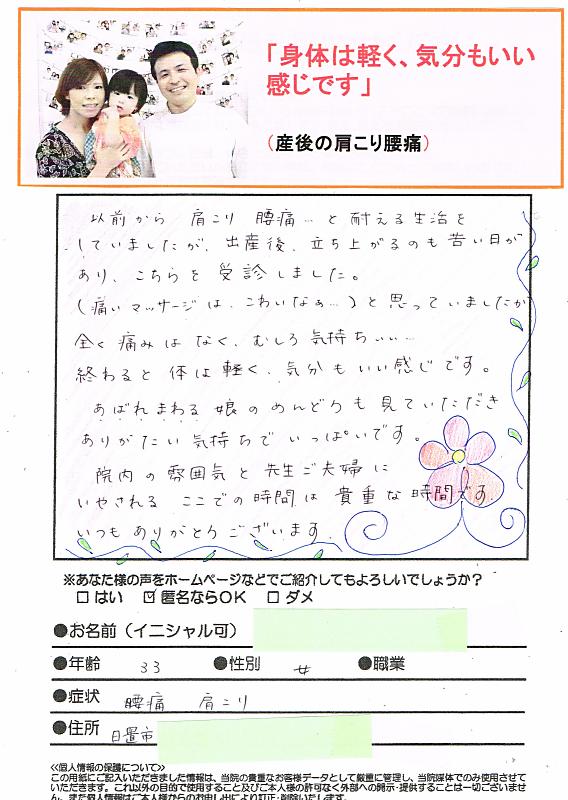 「身体は軽く、気分もいい
感じです」
（産後の肩こり腰痛）
以前から 肩こり 腰痛… と 耐える生活を
していましたが、出産後、立ち上がるのも 苦い日が
あり、こちらを 受診しました。
（痛いマッサージは、こわいなぁ…）と 思っていましたが
全く 痛みは なく、むしろ 気持ちいい…
終わると 体は 軽く、気分も いい 感じです。
あばれまわる 娘の めんどうも 見ていただき
ありがたい 気持ちで いっぱいです。
院内の 雰囲気と 先生ご夫婦に
いやされる ここでの時間は 貴重な時間です
いつも ありがとうございます
※あなた様の声をホームページなどでご紹介してもよろしいでしょうか？
□ はい ☑ 匿名ならOK □ ダメ
●お名前（イニシャル可）
●年齢 33 ●性別 女 ●職業
●症状 腰痛 肩こり
●住所 日置市
≪個人情報の保護について≫
この用紙にご記入いただきました情報は、当院の貴重なお客様データとして厳重に管理し、当院媒体でのみ使用させて
いただきます。これ以外の目的で使用すること及びご本人様の許可なく外部への開示・提供することは一切ございませ
ん。また個人情報はご本人様からのお申し出により訂正・削除いたします。